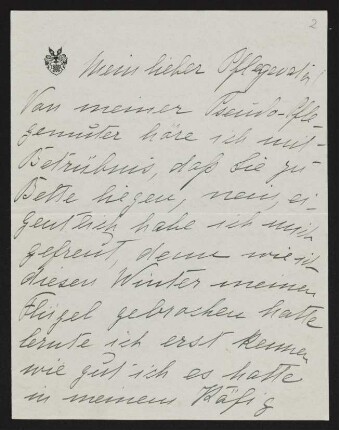 2
Mein lieber Pflegevater!
Von meiner Pseudo-Pfle-
gemutter höre ich mit
Betrübnis, daß Sie zu
Bette liegen, nein, ei-
gentlich habe ich mich
gefreut, denn wie ich
diesen Winter meinen
Flügel gebrochen hatte
lernte ich erst kennen
wie gut ich es hatte
in meinem Käfig